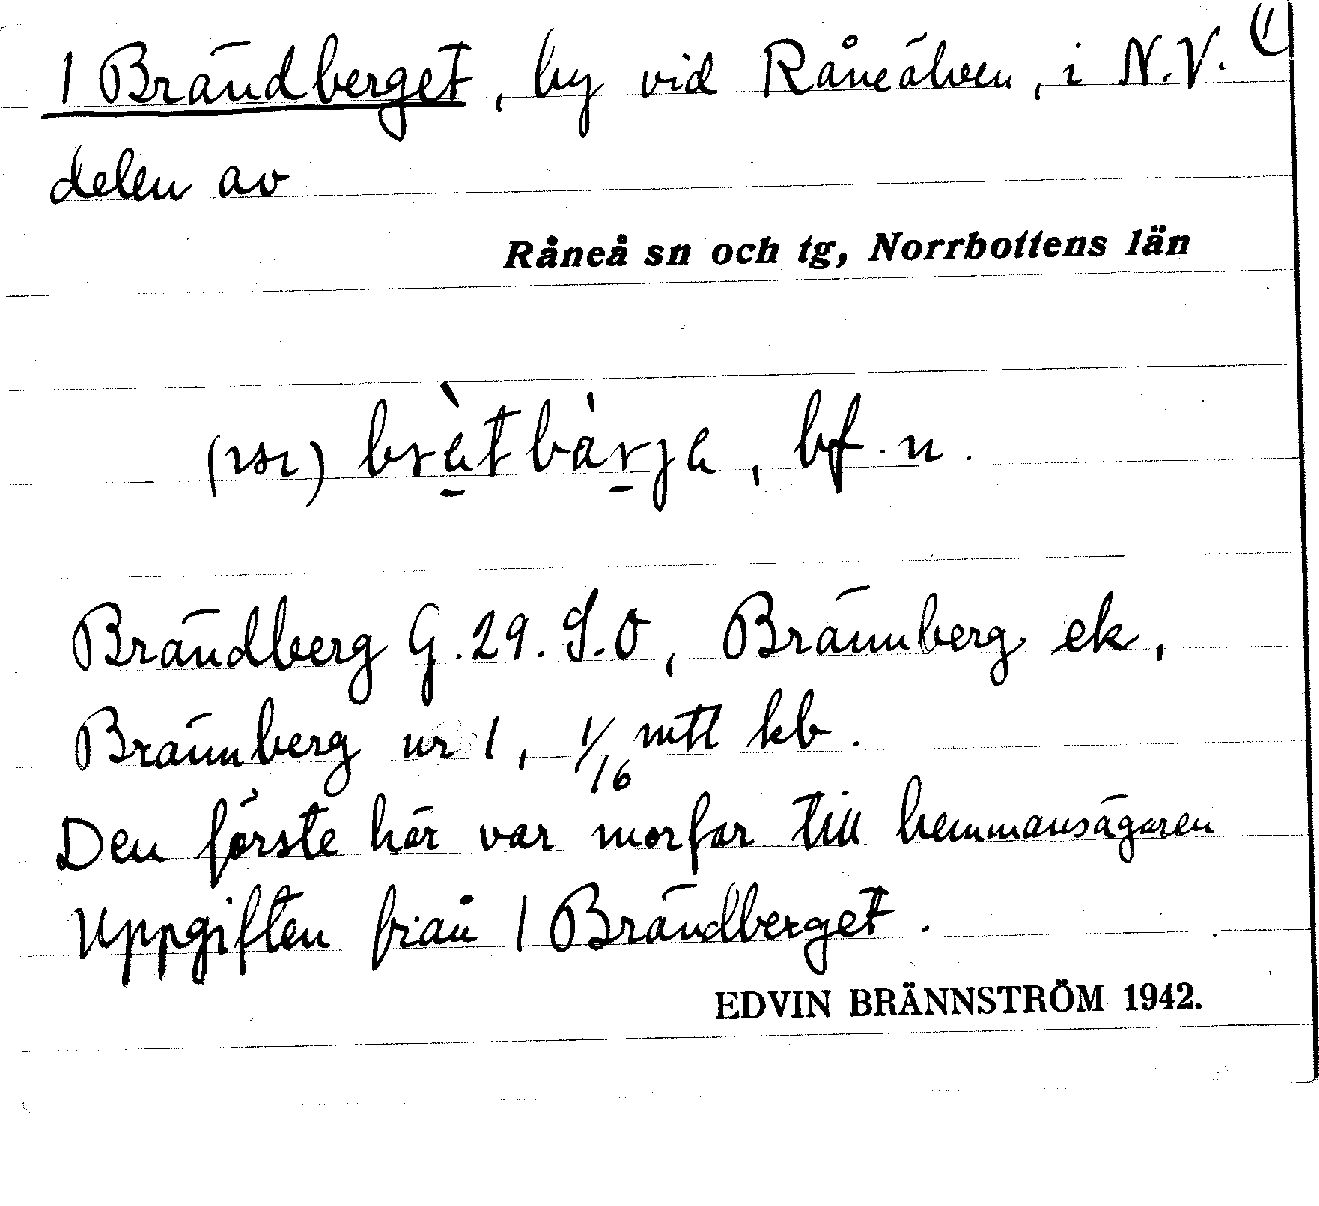 1 Brändberget, by vid Råneälven, i N.V. (1
delen av
Råneå sn och tg, Norrbottens län
bf. n.
Brändberg G.29. S.O, Brännberg ek,
Brännberg nr 1, 1/16 mtl kb.
Den förste här var morfar till hemmansägaren
Uppgiften från 1 Brändberget.
EDVIN BRÄNNSTRÖM 1942.